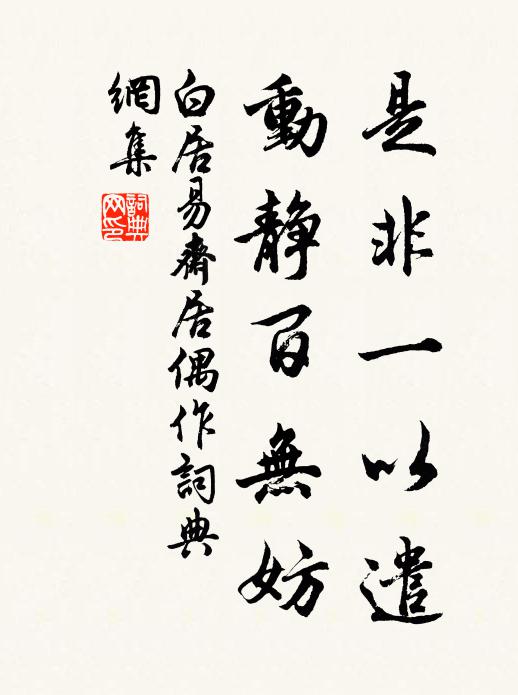 是非一以遣
動靜百無妨
白居易齋居偶作詞典
網集
詞典
网印